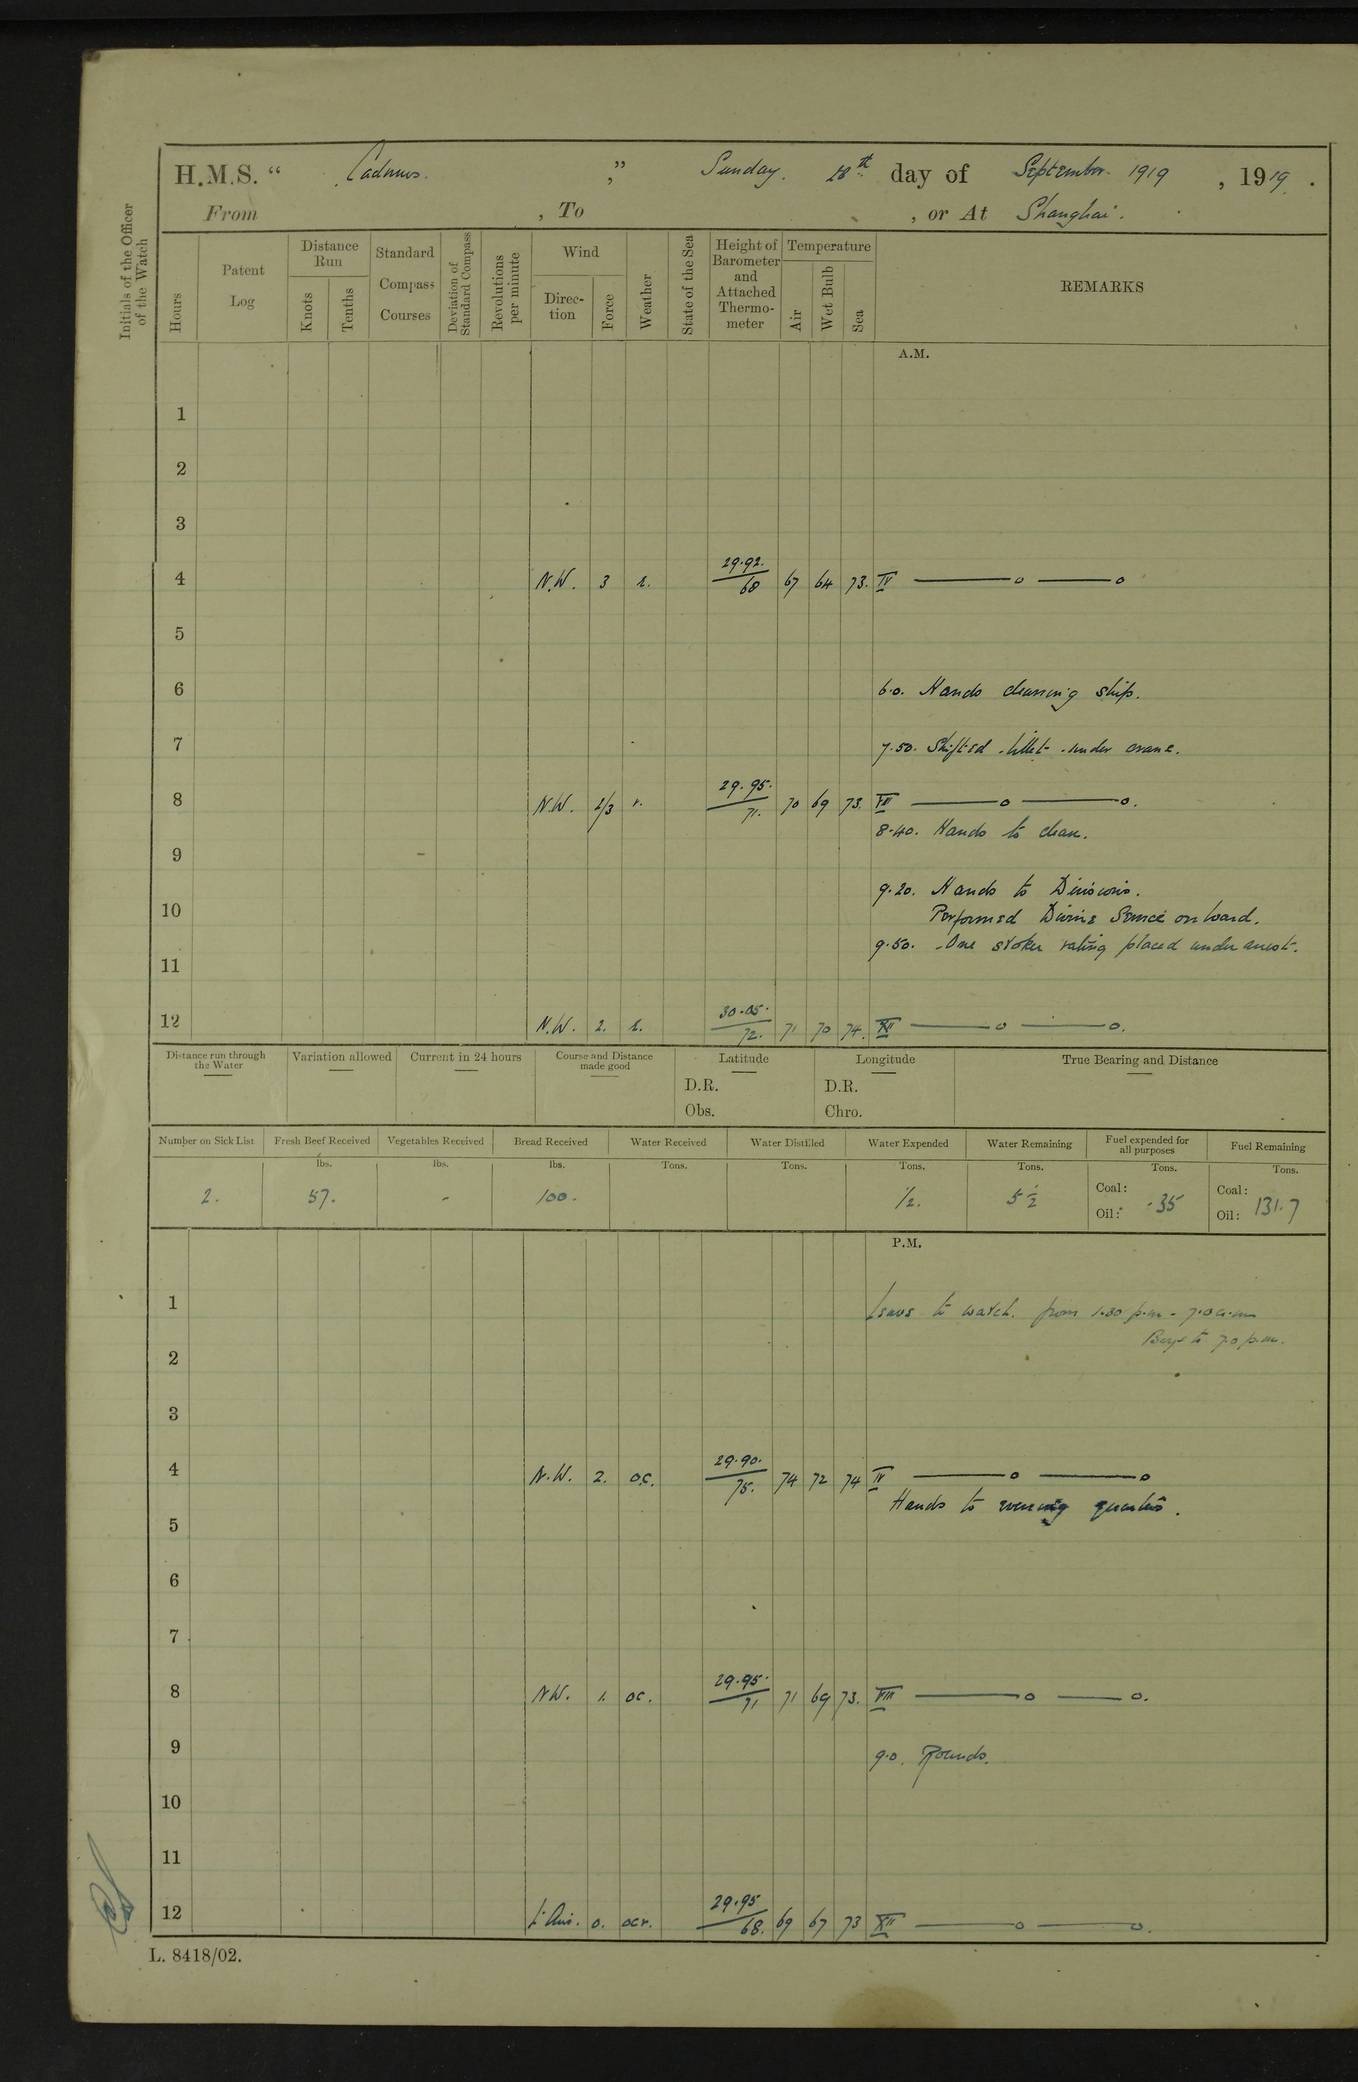 H.M.S. " Cadmus. ," Sunday. 28th day of September 1919 , 1919 .
From , To , or At Shanghai.
Initials of the Officer of the Watch
Hours
Patent Log
Distance Run
Knots
Tenths
Standard Compass Courses
Deviation of Standard Compass
Revolutions per minute
Wind
Direc-tion
Force
Weather
State of the Sea
Height of Barometer and Attached Thermo-meter
Temperature
Air
Wet Bulb
Sea
REMARKS
A.M.
1
2
3
4 N.W. 3 r. 29.92. 68 67 64 73. IV
5
6 6.0. Hands cleaning ship.
7 7.50. Shifted billet under crane.
8 N.W. 2/3 r. 29.95. 71. 70 69 73. VIII
8.40. Hands to clean.
9
9.20. Hands to Divisions.
10 Performed Divine Service on board.
9.50. One stoker rating placed under arrest.
11
12 N.W. 2. r. 30.05. 72. 71 70 74. XII
Distance run through the Water
Variation allowed
Current in 24 hours
Course and Distance made good
Latitude
D.R.
Obs.
Longitude
D.R.
Chro.
True Bearing and Distance
Number on Sick List Fresh Beef Received Vegetables Received Bread Received Water Received Water Distilled Water Expended Water Remaining Fuel expended for all purposes Fuel Remaining
lbs. lbs. lbs. Tons. Tons. Tons. Tons. Tons. Tons.
2. 57. - 100. 1/2. 5 1/2 Coal: Oil: .35 Coal: Oil: 131.7
P.M.
1 Leave to watch. from 1.30 p.m - 7.0 a.m
Boys to 7.0 p.m.
2
3
4 N.W. 2. oc. 29.90. 75. 74 72 74 IV
Hands to evening quarters.
5
6
7
8 NW. 1. oc. 29.95. 71 71 69 73. VIII
9 9.0. Rounds.
10
11
12 Lt Airs. 0. ocr. 29.95 68. 69 67 73 XII
L. 8418/02.